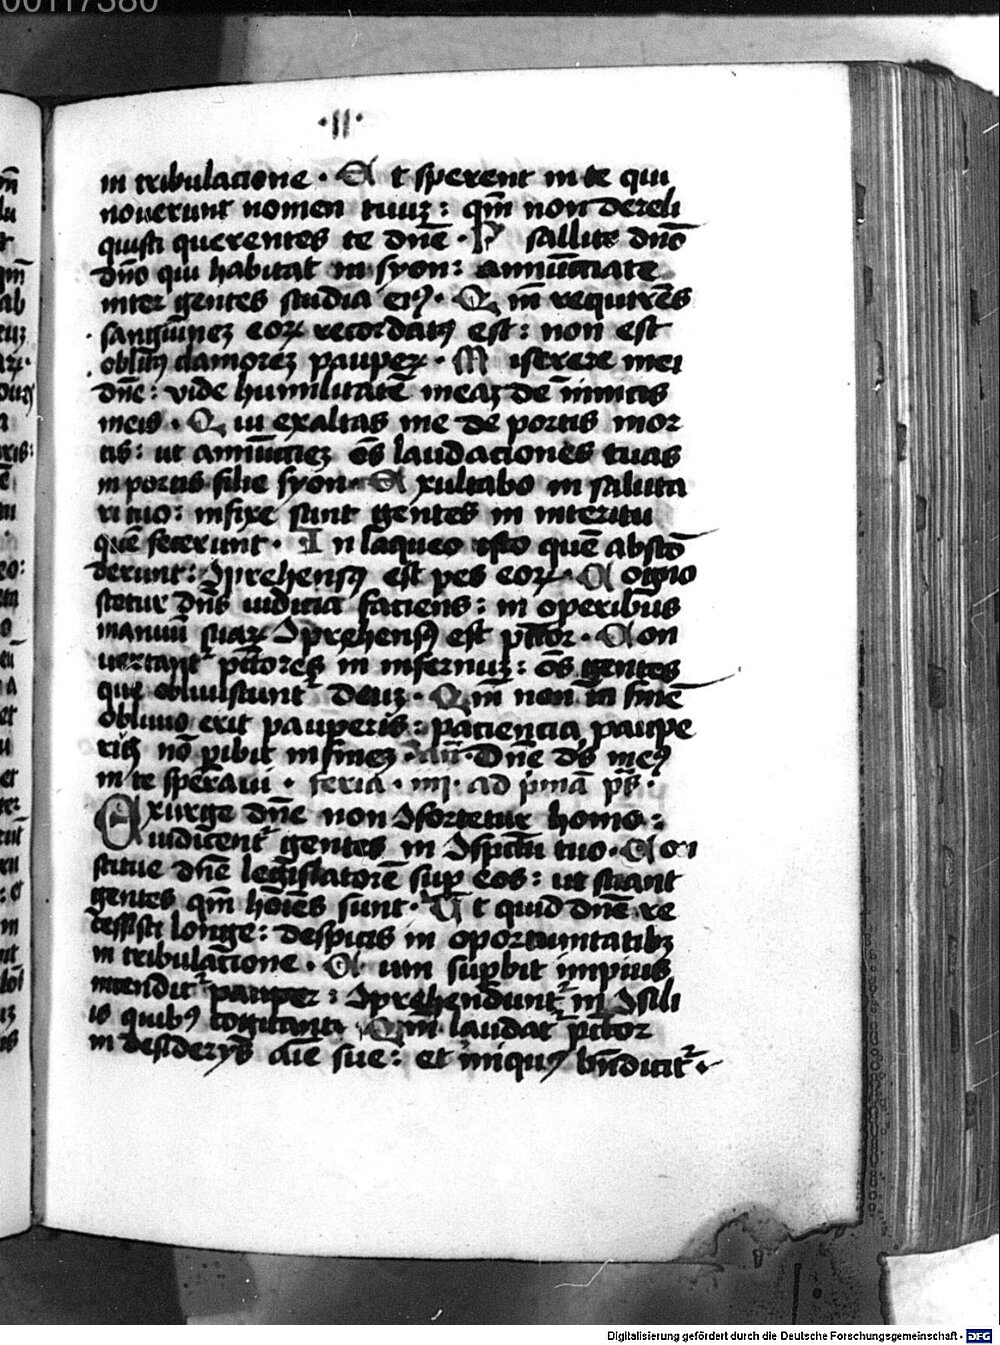 00117380
·II·
in tribulatione · Et sperent in te qui
nouerunt nomen tuuʒ : qm̄ non dereli
quisti querentes te dn̄e · Psallite dn̄o
dn̄o qui habitat in syon : annūtiate
inter gentes studia eiꝰ · Qm̄ requirēs
sanguineʒ eoꝝ recordatꝰ est : non est
oblitꝰ clamoreʒ paupeꝝ · Miserere mei
dn̄e : vide humilitatē meaʒ de īnimicis
meis · Qui exaltas me de portis mor
tis : ut annūtieʒ oēs laudationes tuas
in portis filie syon · Exultabo in saluta
ri tuo : infixe sunt gentes in interitu
quē fecerunt · In laqueo isto quē abscō
derunt : ꝯprehensꝰ est pes eoꝝ · Cogno
scetur dn̄s iuditia faciens : in operibus
manuū suaꝝ ꝯprehensꝰ est pc̄tor · Con
uertant᷑ pc̄tores in infernuʒ : oēs gentes
que obliuiscunt᷑ deuʒ · Qm̄ non in finē
obliuio erit pauperis : patientia paupe
rū nō ꝑibit in fineʒ · an̄ · Dn̄e ds̄ meꝰ
in te speraui · feria · iiii · ad p̄mā ps̄ ·
Exurge dn̄e non ꝯfortetur homo :
iudicent᷑ gentes in ꝯspectu tuo · Con
stitue dn̄e legislatorē suꝑ eos : ut sciant
gentes qm̄ hoīes sunt · Ut quid dn̄e re
cessisti longe : despicis in oportunitatibʒ
in tribulatione · Dum suꝑbit impius
incendit᷑ pauper : ꝯprehendunt᷑ in ꝯsili
is quibꝰ cogitant · Qm̄ laudat᷑ pc̄tor
in desiderijs aīe sue : et iniquꝰ bn̄dicit᷑ ·
Digitalisierung gefördert durch die Deutsche Forschungsgemeinschaft - DFG